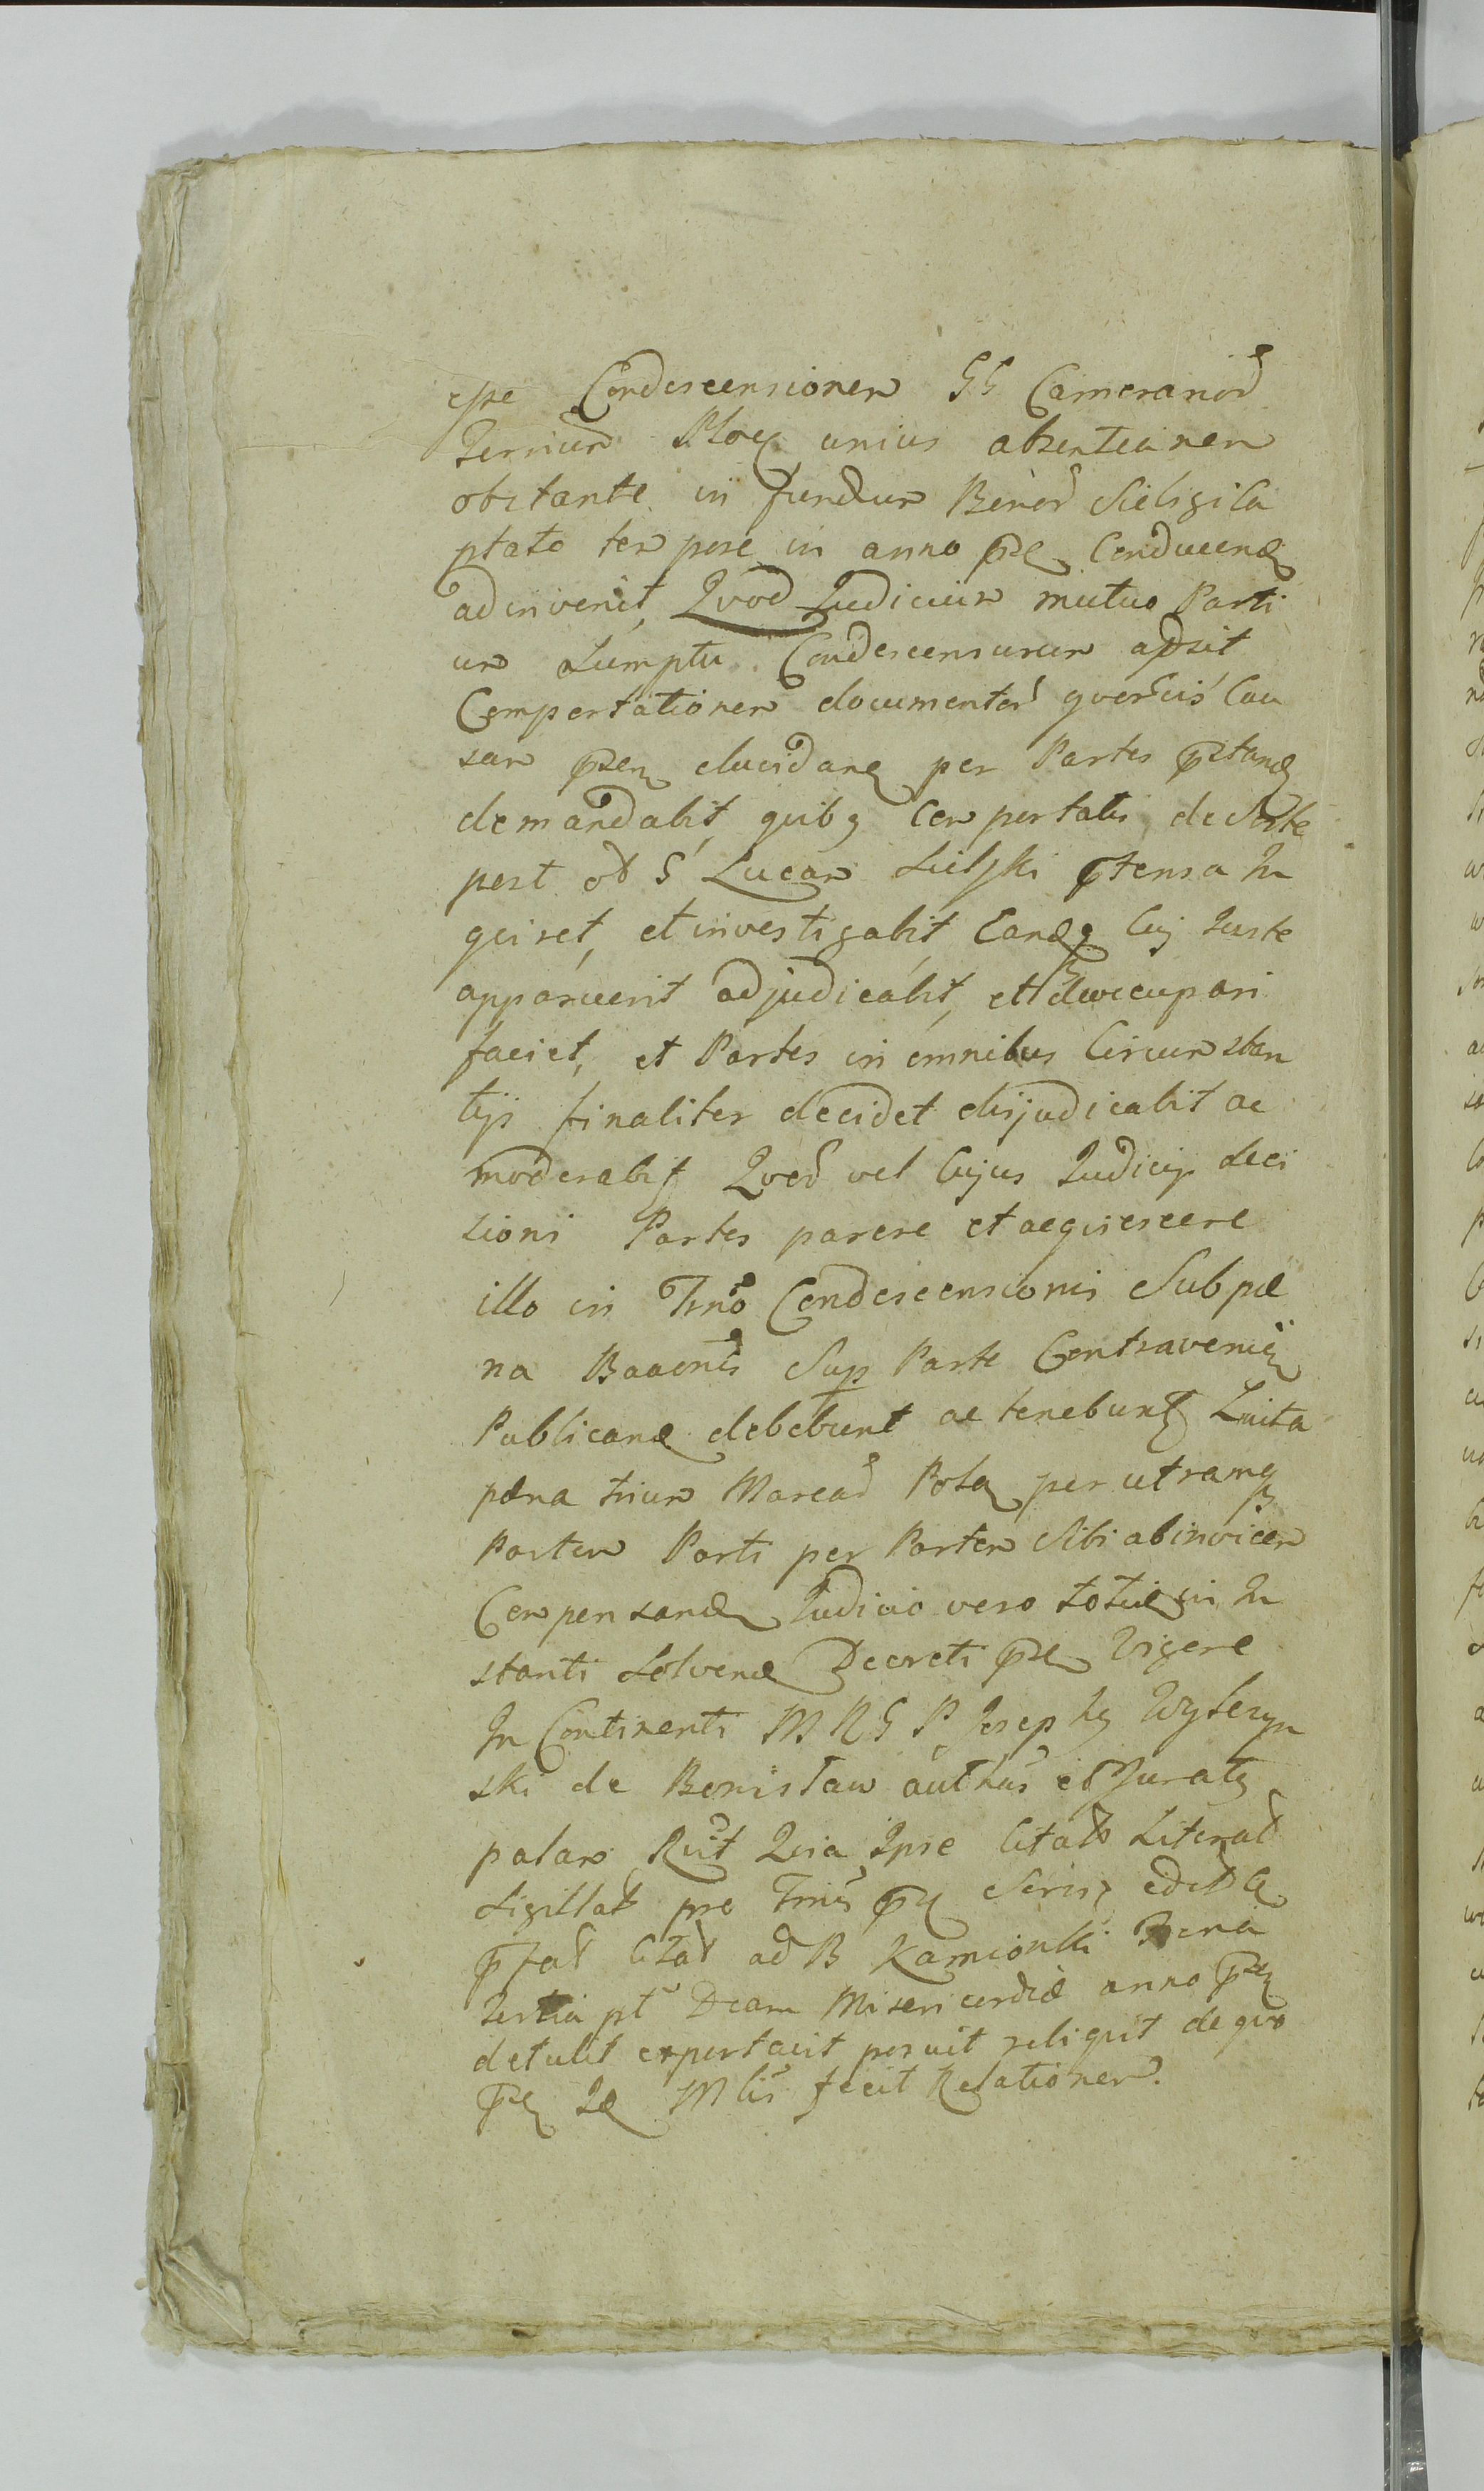 esse Condescensionem GG Cameranor
Terrium Ploc unius absentia non
obstante in fundum Bonor Sieligi Ca
ptato tempore in anno pse Conducend
adinvenit, Quod Judicium mutuo Parti
um Sumptu Condescensurum adsit
Comportationem documentor quorvis Cau
sam psen elucidan per Partes pstand
demandabit, quibq comportatis, de Sorte
post ob G Lucam Sielski ptensa In
quiret, et investigabit, Eandq Cuj Juste
apparuerit adjudicabit, et
faciet, et Partes in omnibus Circumstan
tijs finaliter decidet dijudicabit ac
moderabit Quod vel Cujus Judicij Deci
sioni Partes parere et acquiescere
illo in Trno Condescensionis Sub pæ
na Baaonis Sup Parte Contraveniē
Publicand debebunt ac tenebunt Luita
pæna trium Marcar Pola per utramq
Partem Parti per Partem Sibi abinvicem
Compensand Judicio vero totie in In
stanti Solvend Decreti pse Vigore
In Continenti M R G P Joseph9
ski de Bonislaw authus et Jurat9
palam Rcit Quia Ipse Citats Literat
Sigillat pro Trnis ps Scris edit
pfat Citat ad B Kamionki Feria
tertia pt Dcam Misericordiæ anno pse
detulit exportavit posuit reliquit de quo
ps Mlis fecit Relationem.